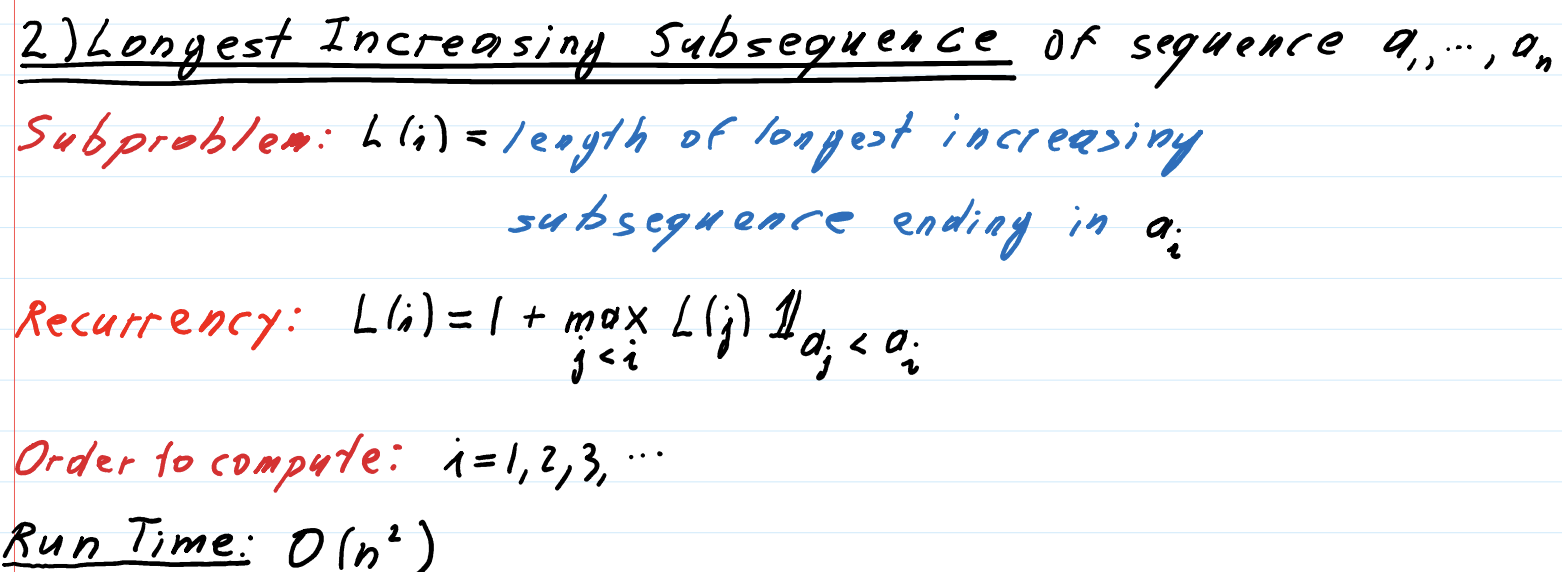 2) Longest Increasing Subsequence of sequence a₁, ..., aₙ
Subproblem: L(i) = length of longest increasing
subsequence ending in aᵢ
Recurrency: L(i) = 1 + max_{j<i} L(j) 𝟙_{aⱼ < aᵢ}
Order to compute: i = 1, 2, 3, ...
Run Time: O(n²)